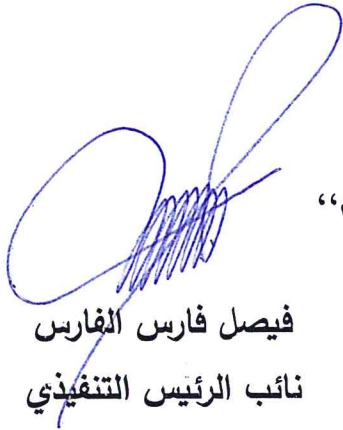 فيصل فارس الفارس
نائب الرئيس التنفيذي